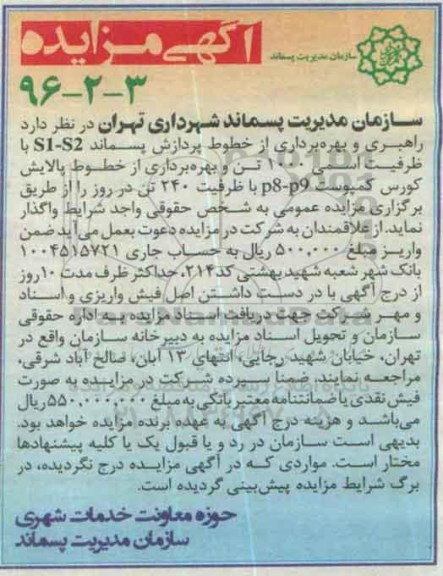 آگهی مزایده
سازمان مدیریت پسماند
۹۶-۲-۳
سازمان مدیریت پسماند شهرداری تهران در نظر دارد
راهبری و بهره‌برداری از خطوط پردازش پسماند S1-S2 با
ظرفیت اسمی تن و بهره‌برداری از خطوط پالایش
کورس کمپوست p8-p9 با ظرفیت ۲۴۰ تن در روز را از طریق
برگزاری مزایده عمومی به شخص حقوقی واجد شرایط واگذار
نماید. از علاقمندان به شرکت در مزایده دعوت بعمل می‌آید ضمن
واریز مبلغ ۵۰۰,۰۰۰ ریال به حساب جاری ۱۰۰۴۵۱۵۷۲۱
بانک شهر شعبه شهید بهشتی کد۲۱۴، حداکثر ظرف مدت ۱۰روز
از درج آگهی با در دست داشتن اصل فیش واریزی و اسناد
و مهر شرکت جهت دریافت اسناد مزایده به اداره حقوقی
سازمان و تحویل اسناد مزایده به دبیرخانه سازمان واقع در
تهران، خیابان شهید رجایی، انتهای ۱۳ آبان، صالح آباد شرقی،
مراجعه نمایند. ضمناً سپرده شرکت در مزایده به صورت
فیش نقدی یا ضمانتنامه معتبر بانکی به مبلغ ۵۵۰,۰۰۰,۰۰۰ریال
می‌باشد و هزینه درج آگهی به عهده برنده مزایده خواهد بود.
بدیهی است سازمان در رد و یا قبول یک یا کلیه پیشنهادها
مختار است. مواردی که در آگهی مزایده درج نگردیده، در
برگ شرایط مزایده پیش‌بینی گردیده است.
حوزه معاونت خدمات شهری
سازمان مدیریت پسماند